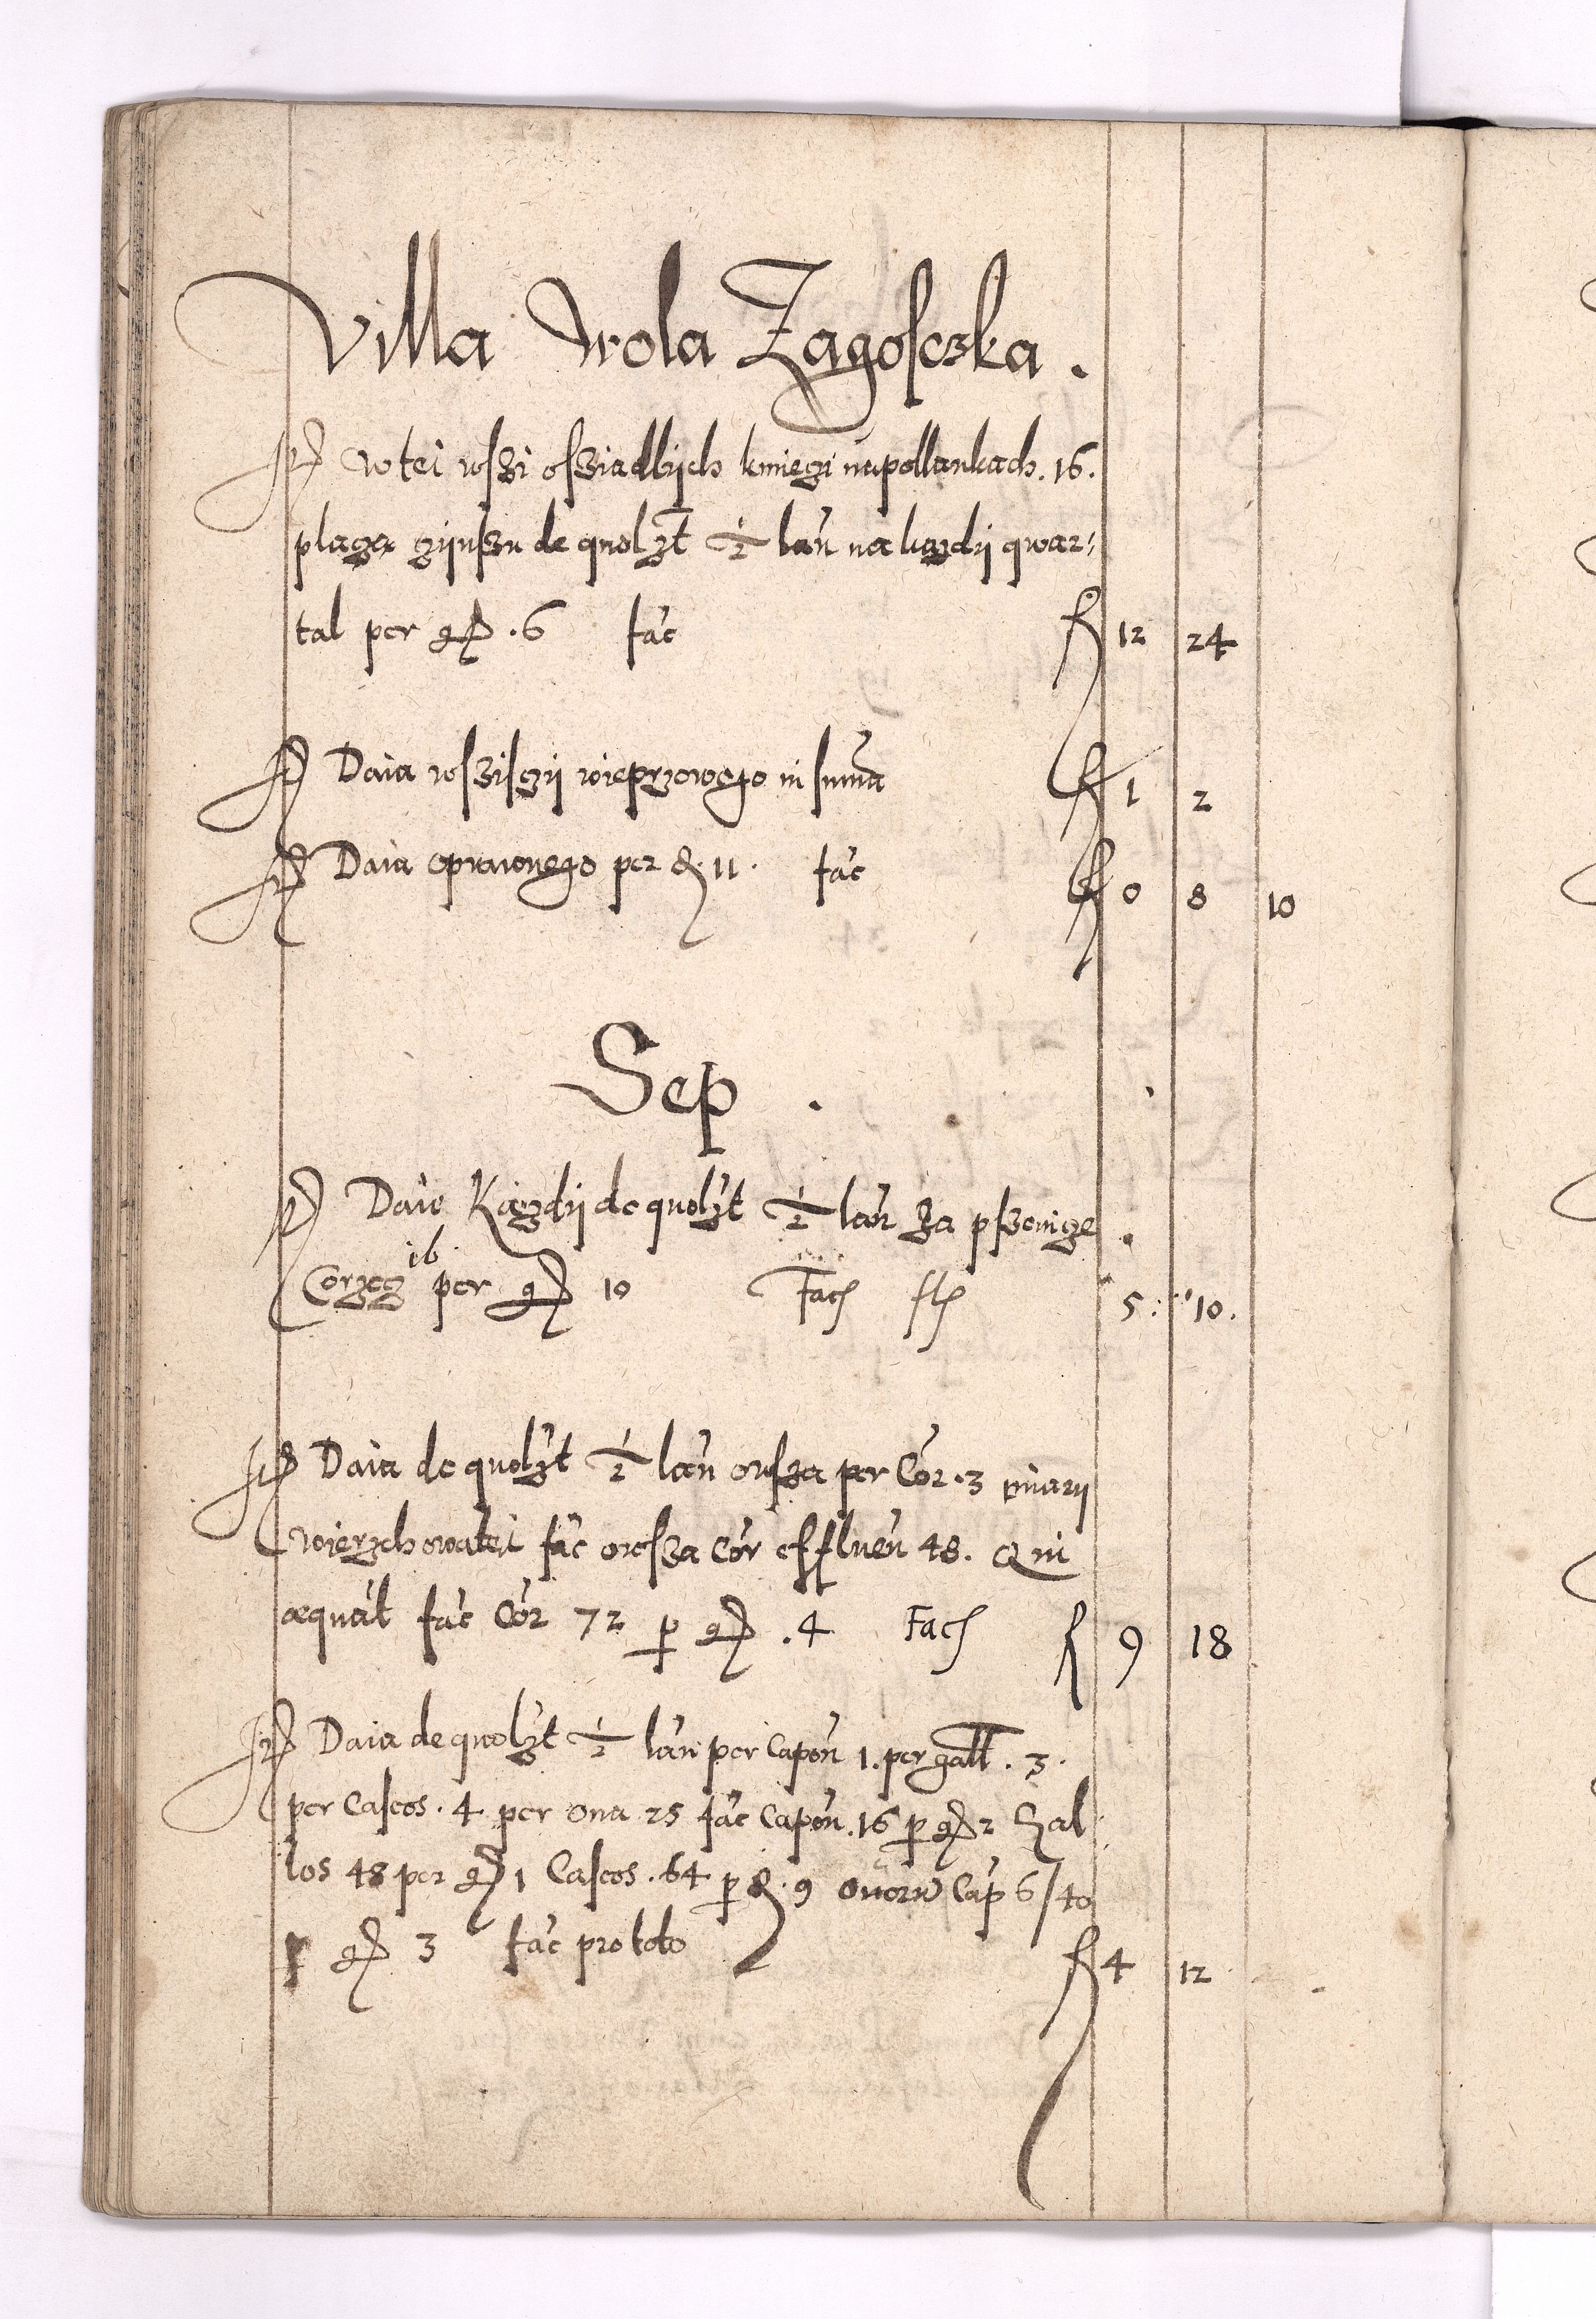 Villa Wola Zagosczka.
It w tei wszi osziadlijch kmiezi napollankach. 16.
placza czijnszu de quolzt ½ lan na kazdij quar:
tal per gr .6 fac f 12 24
It Daia wszisczij wieprzowego in summa f 1 2
It Daia oprawnego per d. 11. fac f 0 8 10
Sep.
It Daie Kazdij de quolzt ½ lan za pszenicze.
Corzecz 16 per gr 10 Fac fl 5: 10.
It Daia de quolzt ½ lan owsza per Cor. 3 miarij
wierzchowatei fac owsza Cor effluen 48. Q in
aequat fac Cor 72 p gr .4 Fac f 9 18
It Daia de quolzt ½ lan per Capon 1. per gall. 3.
per Caseos. 4 per ova 25 fac Capon. 16 p gr 2 Gal
los 48 per gr 1 Caseos. 64 p d. 9 ovorum Cap 6/40
p gr 3 fac pro toto f 4 12